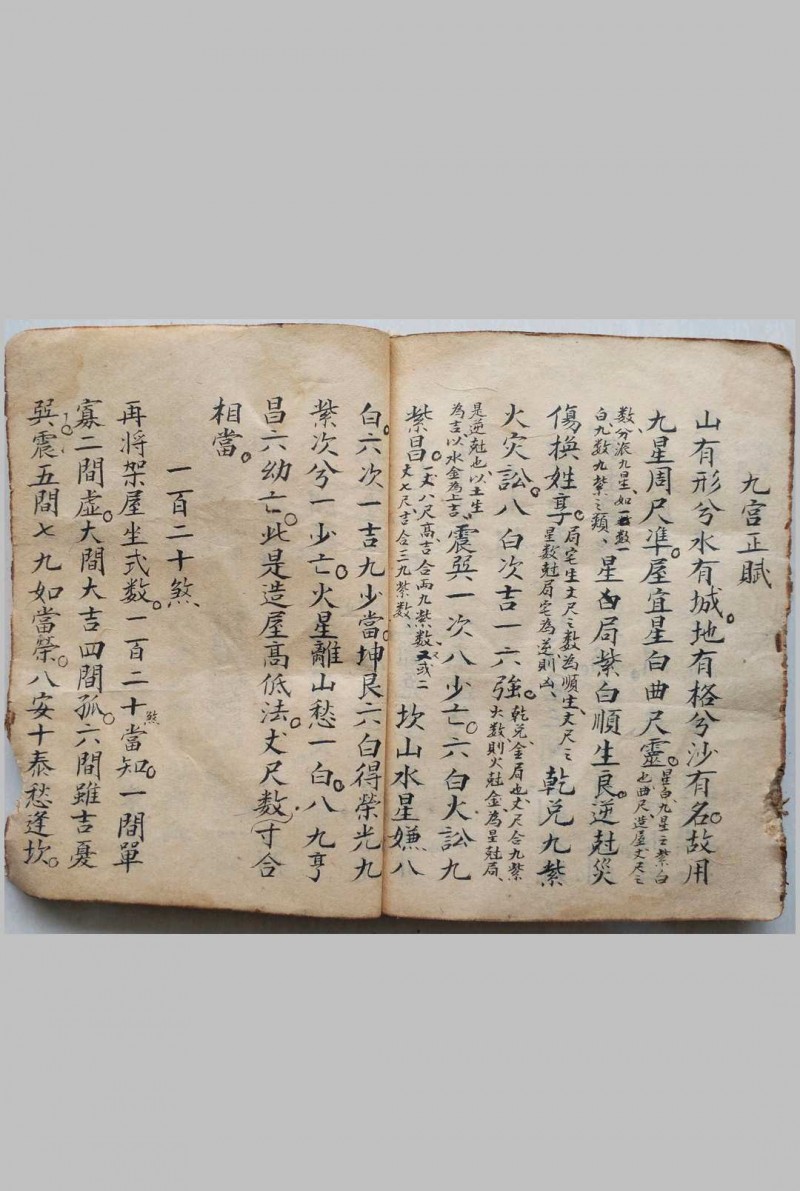 九宮正賦
山有形兮水有城。地有格兮沙有名。故用
九星周尺凖。屋宜星白曲尺灵。星白、九星之紫白也、曲尺、造屋丈尺之
数、分派九星、如一数一白、九数九紫之類、星凶局紫白順生良。逆尅災
傷換姓享。局宅生丈尺之数、為順生、丈尺之星数尅局宅為逆則凶、乾兌九紫
火灾訟。八白次吉一六強。乾兌、金局也、丈尺合九紫火数、則火尅金為星尅局、
是逆尅也、以土生為吉、以水金為上吉、震巽一次八少亡。六白火訟九
紫昌。一丈八尺高、吉合両九紫数、又或二丈七尺、吉合三九紫数、坎山水星嫌八
白。六次一吉九少當。坤艮六白得榮光九
紫次兮一少亡。火星離山愁一白。八九亨
昌六幼亡。此是造屋高低法。丈尺数寸合
相當。
一百二十煞
再將架屋坐式数。一百二十煞當知。一間單
寡二間虛。大間大吉四間孤。六間雖吉憂
巽震五間七九如當榮。八安十泰愁逢坎。